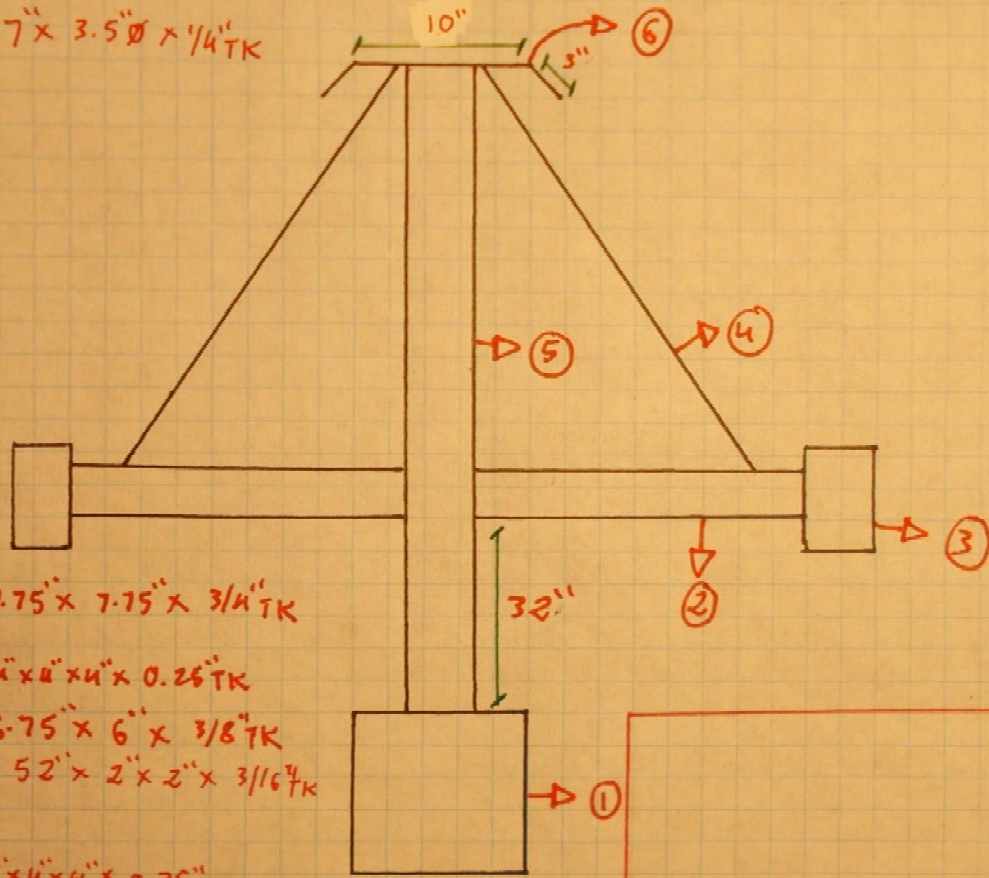 7" x 3.5"Ø x 1/4" TK
10"
6
3"
4
5
3
.75" x 7.75" x 3/4" TK
32"
2
"x4"x4"x 0.25" TK
.75" x 6" x 3/8" TK
52" x 2" x 2" x 3/16" TK
1